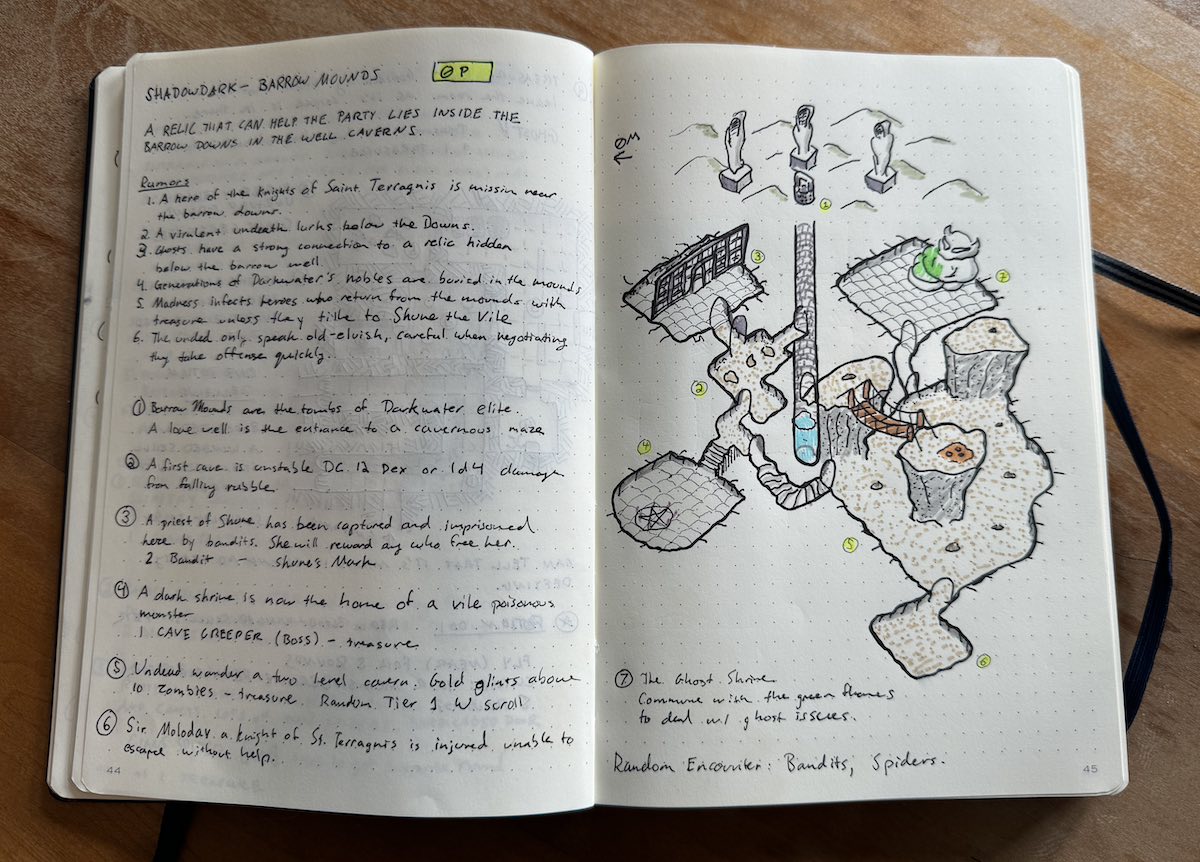 SHADOWDARK - BARROW MOUNDS
ØP
A RELIC THAT CAN HELP THE PARTY LIES INSIDE THE
BARROW DOWNS IN THE WELL CAVERNS.
Rumors
1. A hero of the Knights of Saint Terragnis is missin near
the barrow downs.
2 A virulent undeath lurks below the Downs.
3. Ghosts have a strong connection to a relic hidden
below the barrow well.
4. Generations of Darkwater's nobles are buried in the mounds
5. Madness infects heroes who return from the mounds with
treasure unless they tithe to Shune the Vile
6. The unded only speak old-elvish, careful when negotiating
they take offense quickly.
① Barrow Mounds are the tombs of Darkwater elite.
A lone well is the entrance to a cavernous maze
② A first cave is unstable DC 12 Dex or 1d4 damage
from falling rubble
③ A priest of Shune has been captured and imprisoned
here by bandits. She will reward any who free her.
2. Bandit - Shune's Mark
④ A dark shrine is now the home of a vile poisonous
monster
1 CAVE CREEPER (BOSS) - treasure
⑤ Undead wander a two level cavern. Gold glints above
10 Zombies - treasure. Random Tier 1 W scroll
⑥ Sir Molodav a knight of St. Terragnis is injured unable to
escape without help.
44
1
3
7
2
4
5
6
⑦ The Ghost Shrine
Commune with the green flames
to deal w/ ghost issues.
Random Encounter: Bandits, Spiders.
45